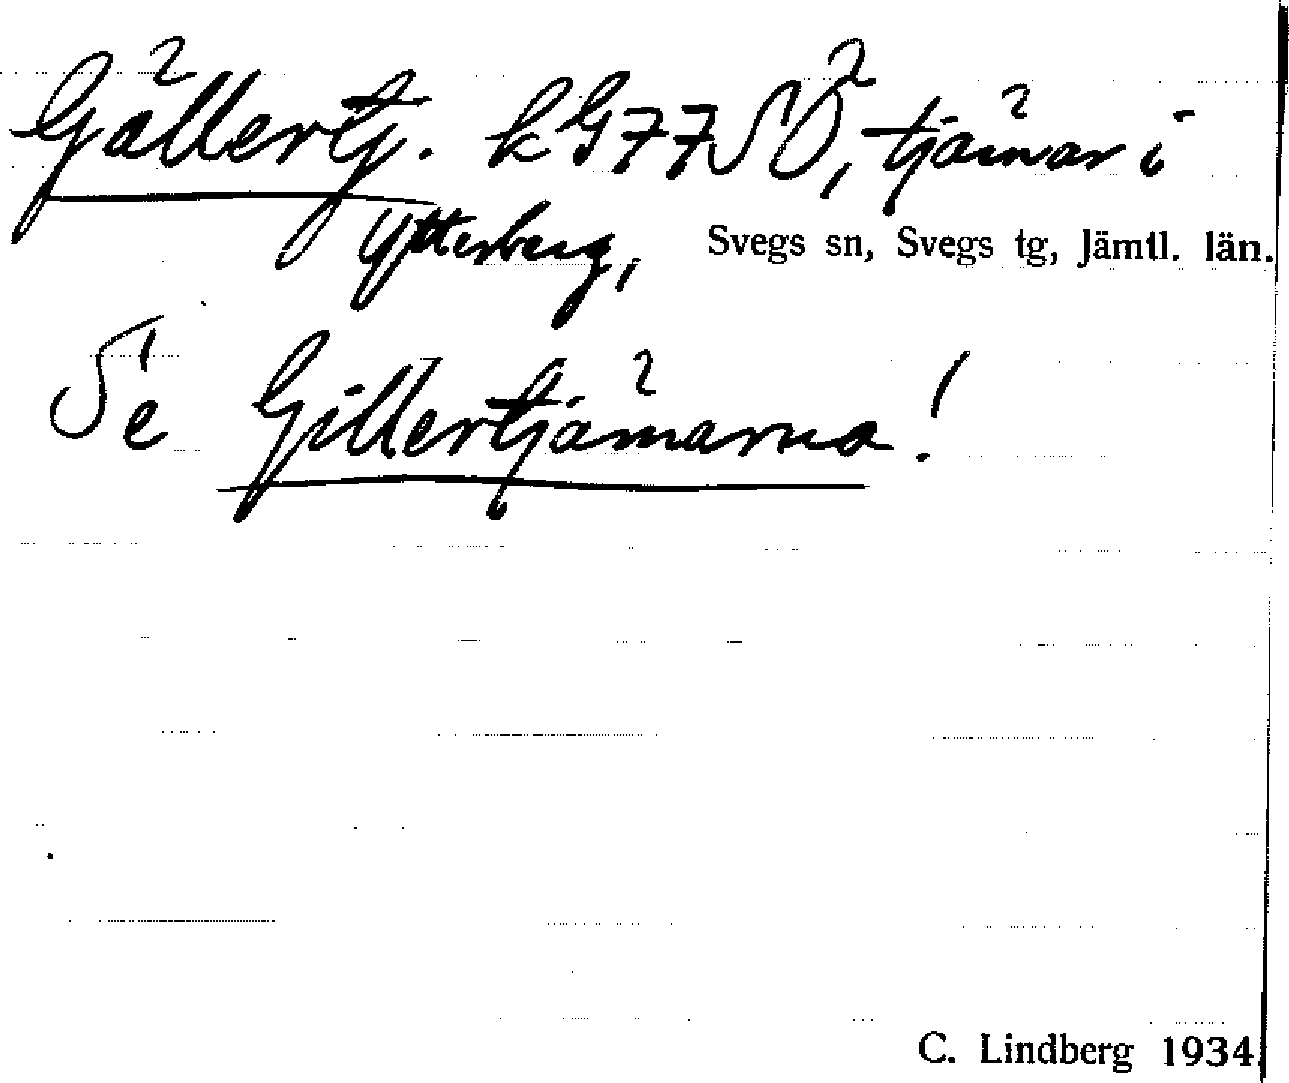 Gällertj. kG77SÖ, tjärnar i
Ytterberg, Svegs sn, Svegs tg, Jämtl. län.
Se Gillertjärnarna!
C. Lindberg 1934